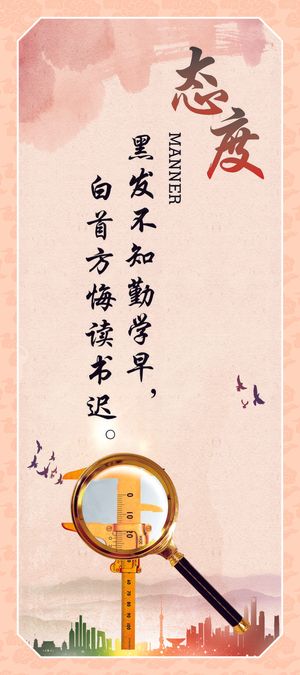 态度
MANNER
黑发不知勤学早，
白首方悔读书迟。
0 10 20